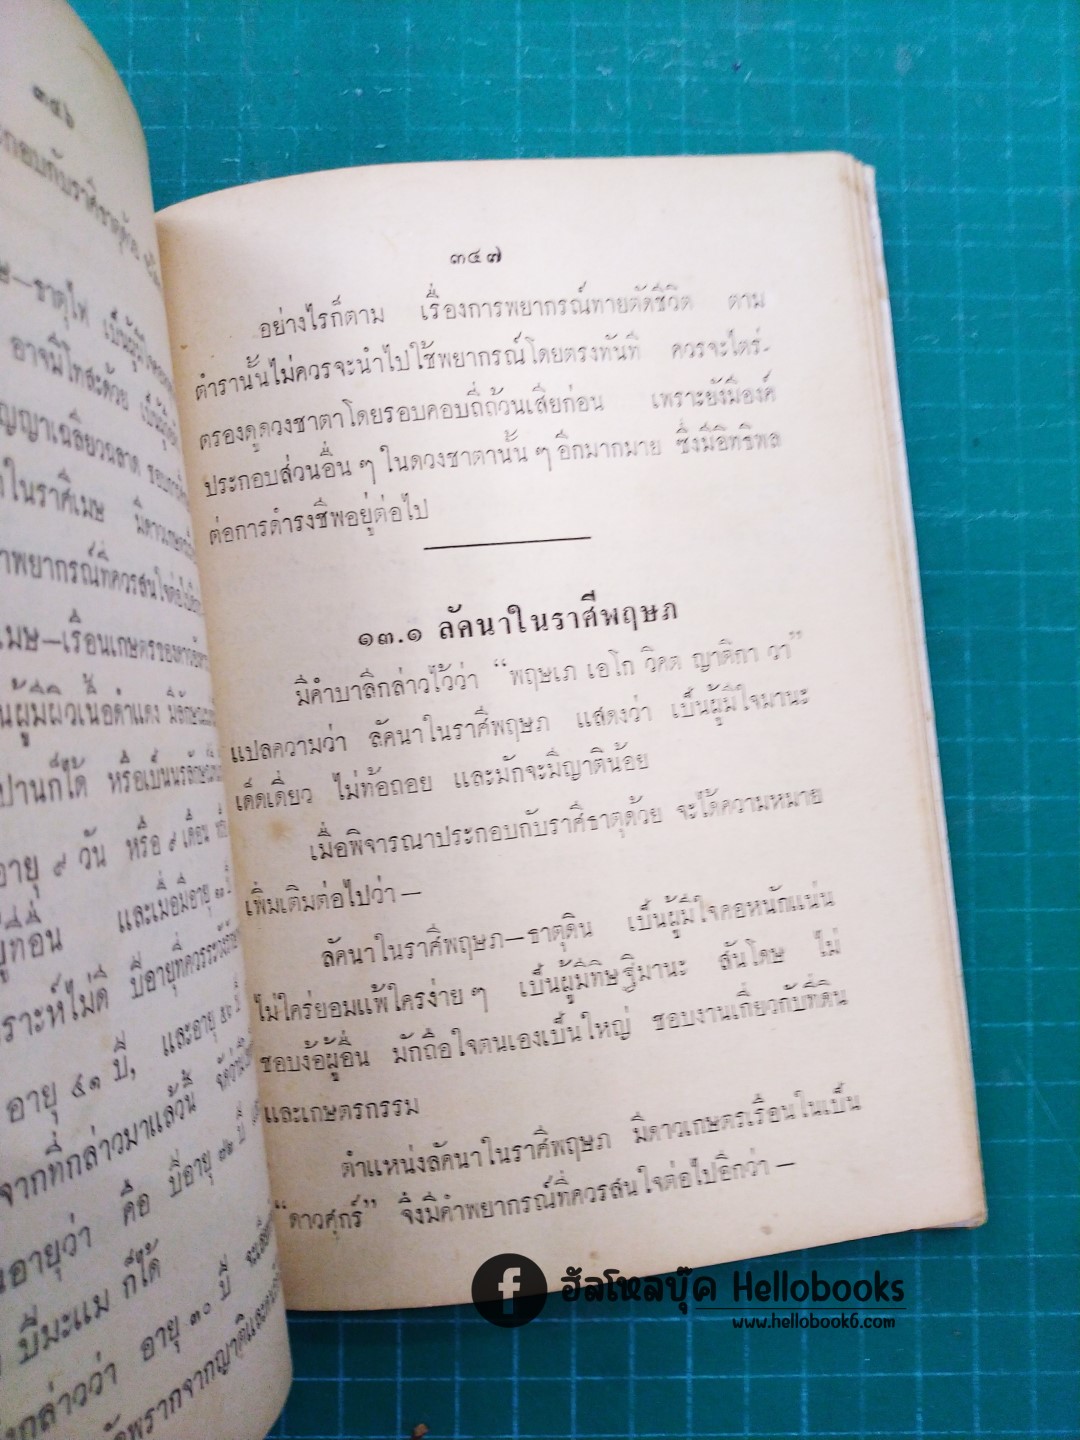 ๓๔๖
ธาตุไฟ เป็นผู้มี
อาจมีโทสะด้วย
ปัญญาเฉลียวฉลาด
ในราศีเมษ มีดาวเกษตร
พยากรณ์ที่ควรสนใจต่อไป
เมษ—เรือนเกษตรของดาวอังคาร
ผู้มีผิวเนื้อดำแดง
ปานก็ได้ หรือเป็น
อายุ ๙ วัน หรือ ๙ เดือน
และเมื่อมีอายุ
เคราะห์ไม่ดี ปีอายุที่ควรระวัง
อายุ ๔๑ ปี, และอายุ
จากที่กล่าวมาแล้วนี้
อายุว่า คือ ปีอายุ ๗๒ ปี
ปีมะแม ก็ได้
กล่าวว่า อายุ ๓๐ ปี
พรากจากญาติและ
๓๔๗
อย่างไรก็ตาม เรื่องการพยากรณ์ทายตัดชีวิต ตาม
ตำรานั้นไม่ควรจะนำไปใช้พยากรณ์โดยตรงทันที ควรจะไตร่-
ตรองดูดวงชาตาโดยรอบคอบถี่ถ้วนเสียก่อน เพราะยังมีองค์
ประกอบส่วนอื่น ๆ ในดวงชาตานั้น ๆ อีกมากมาย ซึ่งมีอิทธิพล
ต่อการดำรงชีพอยู่ต่อไป
๑๓.๑ ลัคนาในราศีพฤษภ
มีคำบาลีกล่าวไว้ว่า “พฤษเภ เอโก วิคต ญาติกา วา”
แปลความว่า ลัคนาในราศีพฤษภ แสดงว่า เป็นผู้มีใจมานะ
เด็ดเดี่ยว ไม่ท้อถอย และมักจะมีญาติน้อย
เมื่อพิจารณาประกอบกับราศีธาตุด้วย จะได้ความหมาย
เพิ่มเติมต่อไปว่า —
ลัคนาในราศีพฤษภ—ธาตุดิน เป็นผู้มีใจคอหนักแน่น
ไม่ใคร่ยอมแพ้ใครง่าย ๆ เป็นผู้มีทิษฐิมานะ สันโดษ ไม่
ชอบง้อผู้อื่น มักถือใจตนเองเป็นใหญ่ ชอบงานเกี่ยวกับที่ดิน
และเกษตรกรรม
ตำแหน่งลัคนาในราศีพฤษภ มีดาวเกษตรเรือนในเป็น
“ดาวศุกร์” จึงมีคำพยากรณ์ที่ควรสนใจต่อไปอีกว่า —
ฮัลโหลบุ๊ค Hellobooks
www.hellobook6.com